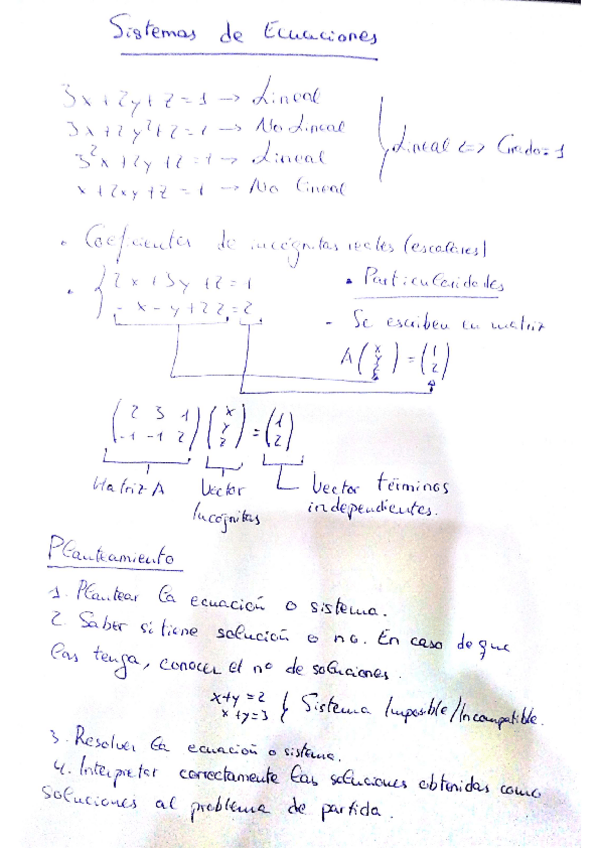 Sistemas de Ecuaciones
3x+2y+z=1 → Lineal
3x+2y²+z=1 → No Lineal
3²x+2y+z=1 → Lineal
x+2xy+z=1 → No lineal
Lineal <=> Grado=1
• Coeficientes de incógnitas reales (escalares)
• { 2x+3y+z=1
-x-y+2z=2
• Particularidades
- Se escriben en matriz
A (x y z) = (1 2)
(2 3 1 / -1 -1 2) (x y z) = (1 2)
Matriz A
Vector Incógnitas
Vector términos independientes.
Planteamiento
1. Plantear la ecuación o sistema.
2. Saber si tiene solución o no. En caso de que
las tenga, conocer el nº de soluciones.
x+y=2
x+y=3 } Sistema Imposible/Incompatible.
3. Resolver la ecuación o sistema.
4. Interpretar correctamente las soluciones obtenidas como
soluciones al problema de partida.